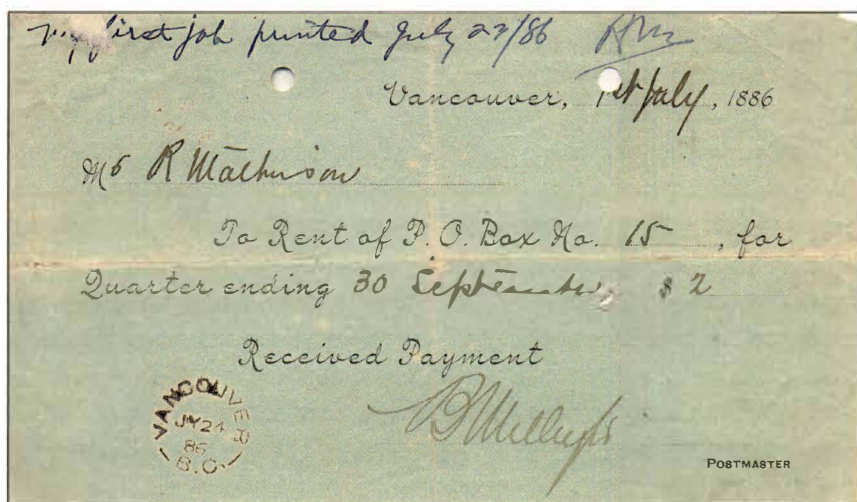 My first job printed July 22/86 RM
Vancouver, 1st July, 1886
Mr R Mathison
To Rent of P. O. Box No. 15, for
Quarter ending 30 September $ 2
Received Payment
VANCOUVER
JY 24
86
B.C.
POSTMASTER